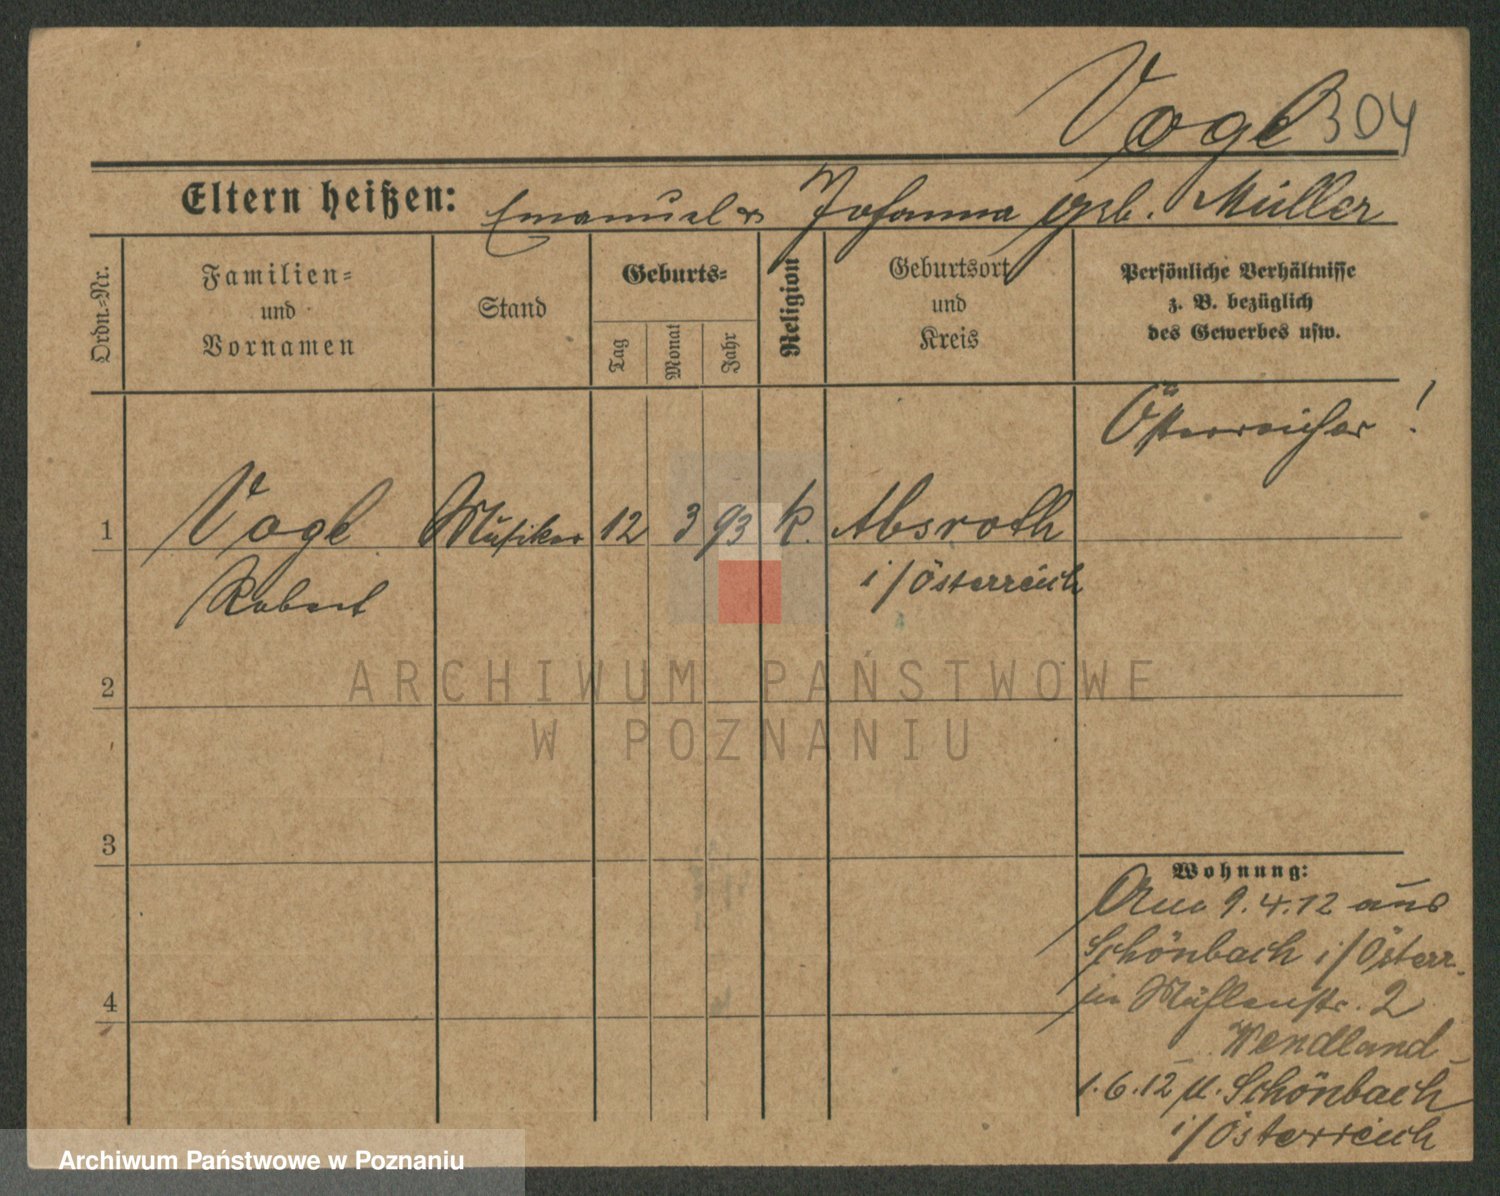 Vogl 304
Eltern heißen: Emanuel & Johanna geb. Müller
Ordn.-Nr.
Familien-
und
Vornamen
Stand
Geburts-
Tag
Monat
Jahr
Religion
Geburtsort
und
Kreis
Persönliche Verhältnisse
z. B. bezüglich
des Gewerbes usw.
Österreicher !
1 Vogl Musiker 12 3 93 k. Absroth
Robert i/Österreich
2
ARCHIWUM PAŃSTWOWE
W POZNANIU
3
Wohnung:
Am 9.4.12 aus
Schönbach i/Österr.
in Mühlenstr. 2
Wendland
4
1.6.12 n. Schönbach
i/Österreich
Archiwum Państwowe w Poznaniu